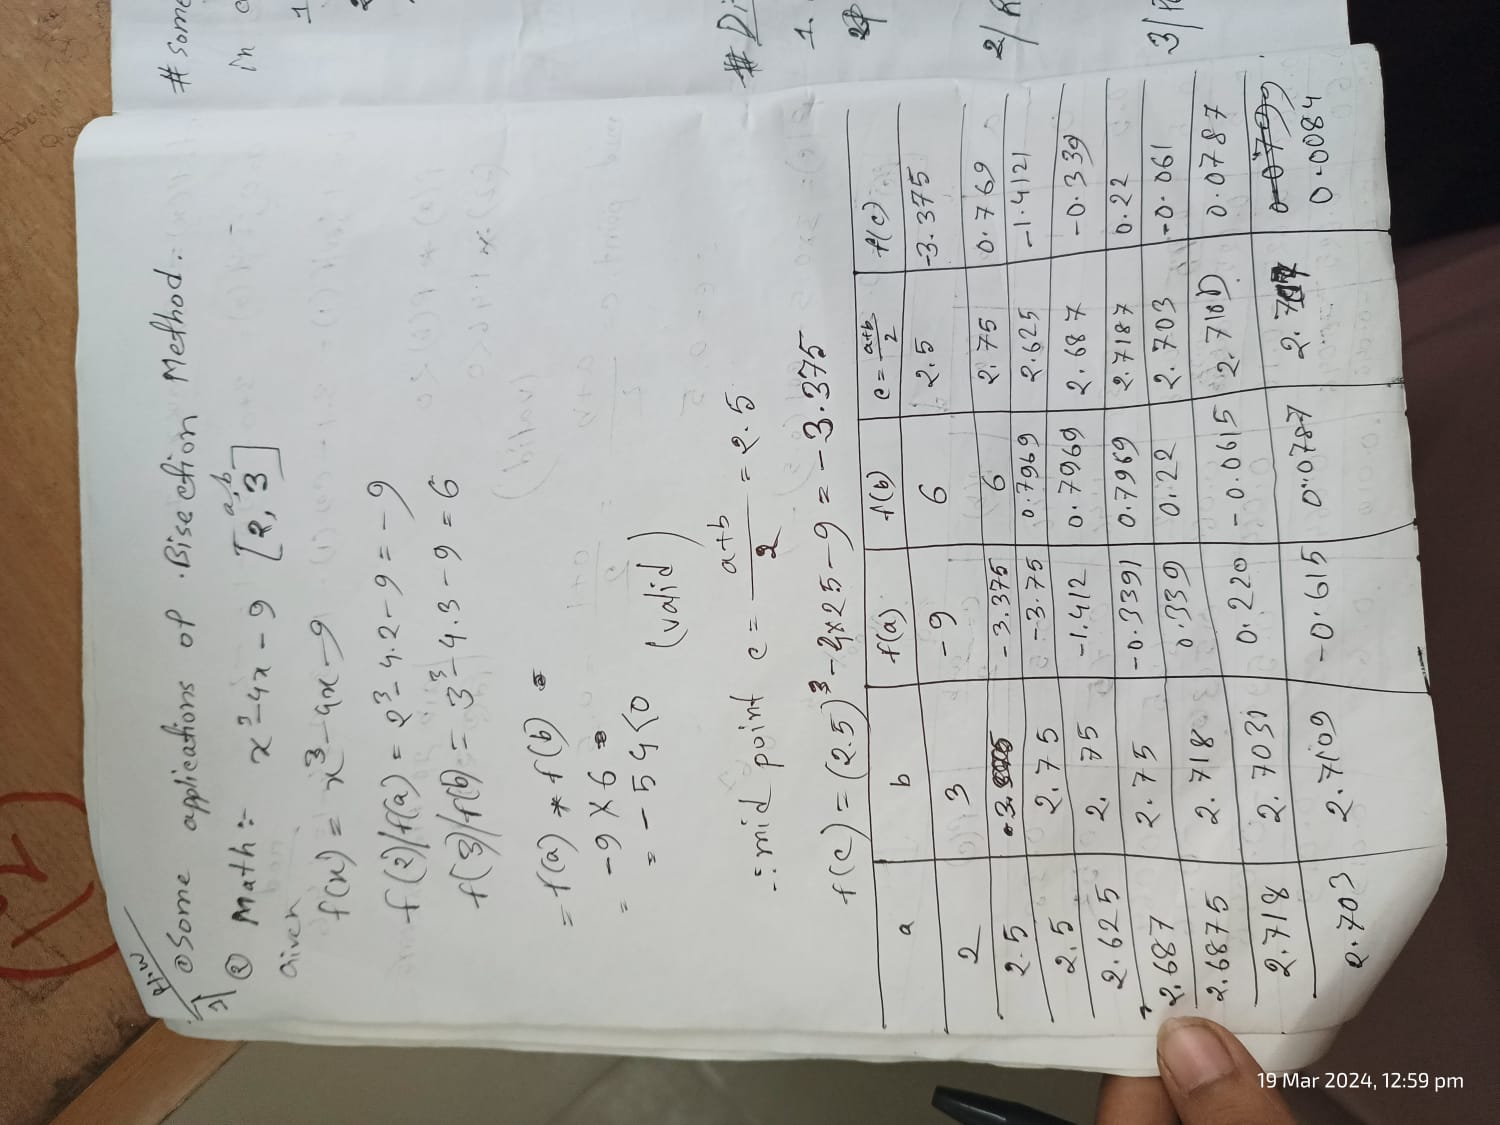 H.W
1/ @ Some applications of Bisection Method:
@ Math:- x³-4x-9 [2, 3] a,b
Given
f(x) = x³-4x-9
f(2)/f(a) = 2³-4.2-9 = -9
f(3)/f(b) = 3³-4.3-9 = 6
= f(a) * f(b)
= -9 × 6
= -54<0 (valid)
∴ mid point c = a+b/2 = 2.5
f(c) = (2.5)³-4×2.5-9 = -3.375
a b f(a) f(b) c = a+b/2 f(c)
2 3 -9 6 2.5 -3.375
2.5 3 -3.375 6 2.75 0.769
2.5 2.75 -3.75 0.7969 2.625 -1.4121
2.625 2.75 -1.412 0.7969 2.687 -0.339
2.687 2.75 -0.3391 0.7969 2.7187 0.22
2.6875 2.718 0.339 0.22 2.703 -0.061
2.718 2.7031 0.220 -0.0615 2.7101 0.0787
2.703 2.7109 -0.615 0.0787 2.707 0.0084
# Some
in
1
# Di
1.
2/
3/
19 Mar 2024, 12:59 pm